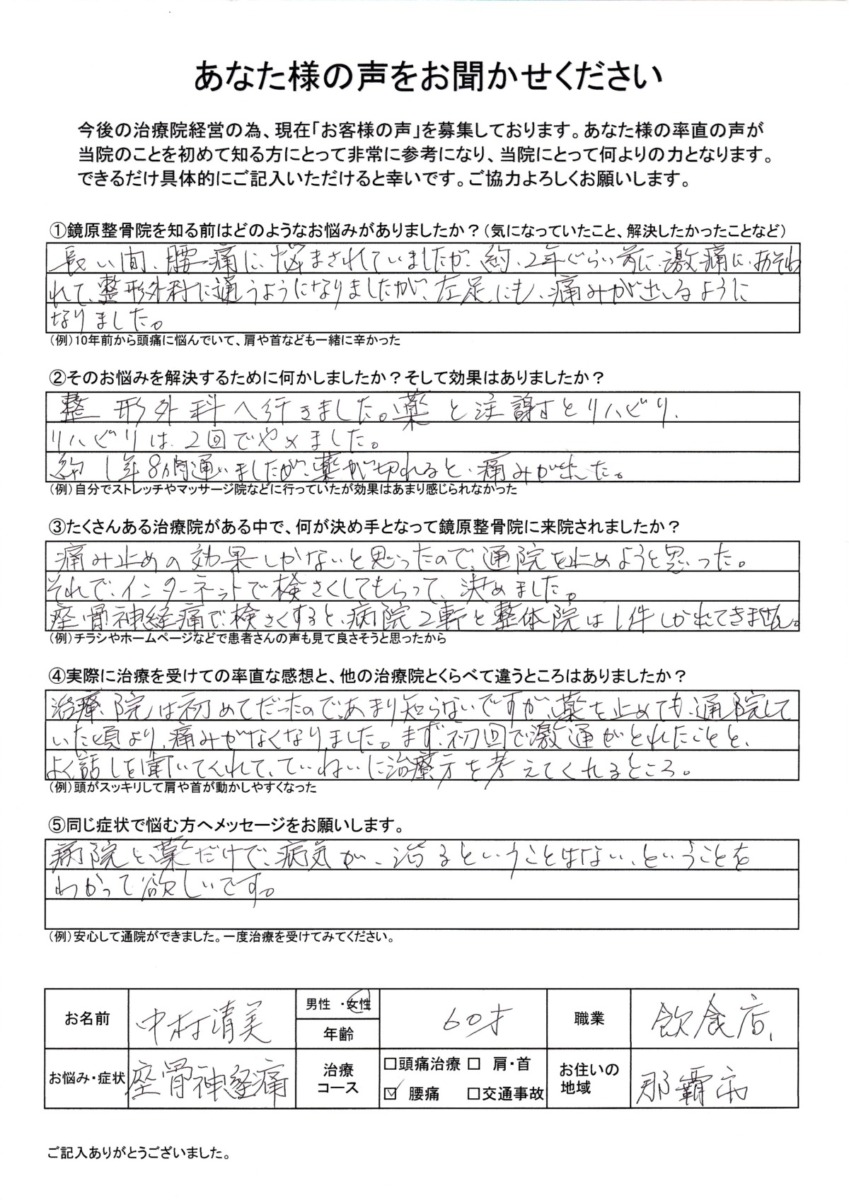 あなた様の声をお聞かせください
今後の治療院経営の為、現在「お客様の声」を募集しております。あなた様の率直の声が
当院のことを初めて知る方にとって非常に参考になり、当院にとって何よりの力となります。
できるだけ具体的にご記入いただけると幸いです。ご協力よろしくお願いします。
①鏡原整骨院を知る前はどのようなお悩みがありましたか？(気になっていたこと、解決したかったことなど)
長い間、腰痛に、悩まされていましたが、約、2年ぐらい前に、激痛に、おそわ
れて、整形外科に通うようになりましたが、左足にも、痛みが出るように
なりました。
(例)10年前から頭痛に悩んでいて、肩や首なども一緒に辛かった
②そのお悩みを解決するために何かしましたか？そして効果はありましたか？
整形外科へ行きました。薬と注謝とリハビリ、
リハビリは、2回でやめました。
約1年8ヵ月間通いましたが、薬が切れると、痛みが出た。
(例)自分でストレッチやマッサージ院などに行っていたが効果はあまり感じられなかった
③たくさんある治療院がある中で、何が決め手となって鏡原整骨院に来院されましたか？
痛み止めの効果しかないと思ったので、通院を止めようと思った。
それで、インターネットで検さくしてもらって、決めました。
座骨神経痛で検さくすると、病院2軒と整体院は1件しかでてきません。
(例)チラシやホームページなどで患者さんの声も見て良さそうと思ったから
④実際に治療を受けての率直な感想と、他の治療院とくらべて違うところはありましたか？
治療院は初めてだったので、あまり知らないですが、薬を止めても、通院して
いた頃より、痛みがなくなりました。まず、初回で激通がとれたことと、
よく話しを聞いてくれて、ていねいに治療方を考えてくれるところ。
(例)頭がスッキリして肩や首が動かしやすくなった
⑤同じ症状で悩む方へメッセージをお願いします。
病院と、薬だけで、病気が、治るということはない、ということを
わかって欲しいです。
(例)安心して通院ができました。一度治療を受けてみてください。
お名前 中村清美 男性 ・女性 年齢 60才 職業 飲食店、
お悩み・症状 座骨神経痛 治療コース □頭痛治療 □ 肩・首 ☑ 腰痛 □交通事故 お住いの地域 那覇市
ご記入ありがとうございました。